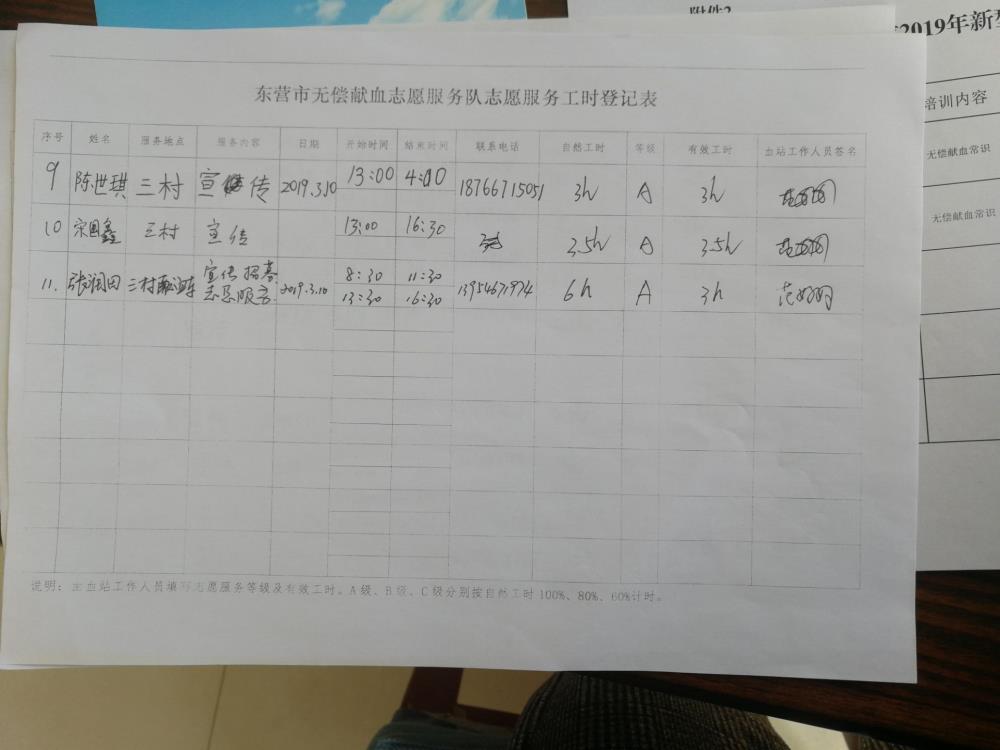 附件2
2019年新
东营市无偿献血志愿服务队志愿服务工时登记表
培训内容
序号 姓名 服务地点 服务内容 日期 开始时间 结束时间 联系电话 自然工时 等级 有效工时 血站工作人员签名
无偿献血常识
9 陈世琪 三村 宣传 2019.3.10 13:00 4:10 18766715051 3h A 3h
无偿献血常识
10 宋国鑫 三村 宣传 13:00 16:30 3.5h A 3.5h
11. 张润田 三村献血车 宣传招募 2019.3.10 8:30 11:30 13954671974 6h A 3h
志愿服务 13:30 16:30
说明：由血站工作人员填写志愿服务等级及有效工时。A级、B级、C级分别按自然工时100%、80%、60%计时。